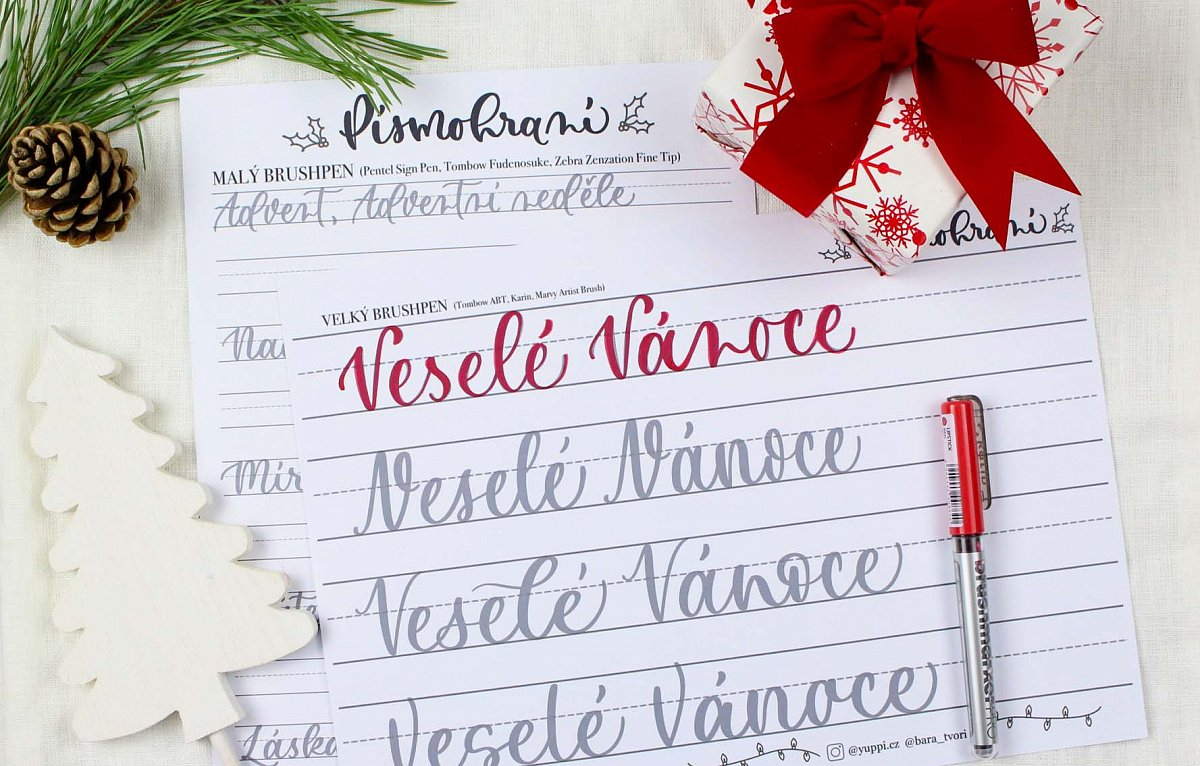 Písmohraní
MALÝ BRUSHPEN (Pentel Sign Pen, Tombow Fudenosuke, Zebra Zenzation Fine Tip)
Advent, Adventní neděle
Láska
VELKÝ BRUSHPEN (Tombow ABT, Karin, Marvy Artist Brush)
Veselé Vánoce
Veselé Vánoce
Veselé Vánoce
Veselé Vánoce
@yuppi.cz @bara_tvori
brushmarker